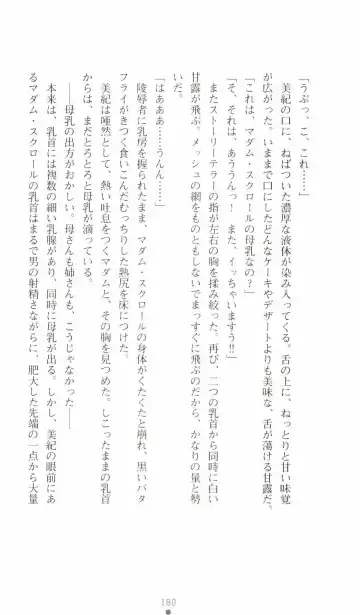 「うぷっ、こ、これ……」
美紀の口に、ねばついた濃厚な液体が染み入ってくる。舌の上に、ねっとりと甘い味覚
が広がった。いままで口にしたどんなケーキやデザートよりも美味な、舌が蕩ける甘露だ。
「これは、マダム・スクロールの母乳なの?」
「そ、それは、あううんっ! また、イッちゃいますう!!」
またストーリーテラーの指が左右の胸を揉み絞った。再び、二つの乳首から同時に白い
甘露が飛ぶ。メッシュの網をものともしないでまっすぐに飛ぶのだから、かなりの量と勢
いだ。
「はあああ……うんん……」
陵辱者に乳房を握られたまま、マダム・スクロールの身体がくたくたと崩れ、黒いバタ
フライがきつく食いこんだむっちりした熟尻を床につけた。
美紀は唖然として、熱い吐息をつくマダムと、その胸を見つめた。しこったままの乳首
からは、まだとろとろと母乳が滴っている。
――母乳の出方がおかしい。母さんも姉さんも、こうじゃなかった――
本来は、乳首には複数の細い乳腺があり、同時に母乳が出る。しかし、美紀の眼前にあ
るマダム・スクロールの乳首はまるで男の射精さながらに、肥大した先端の一点から大量
180